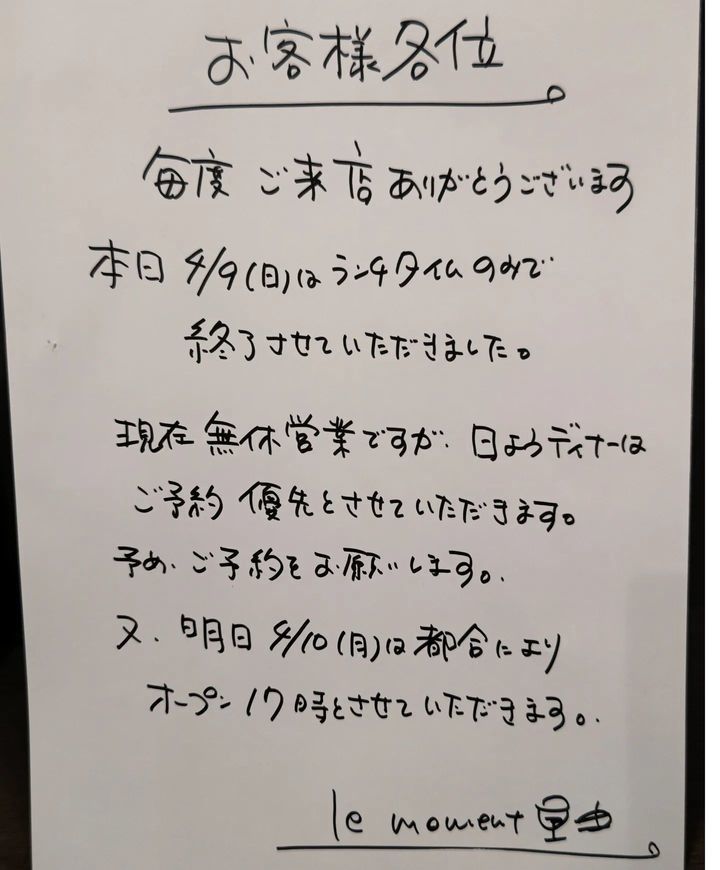 お客様各位
毎度 ご来店ありがとうございます
本日 4/9(日)はランチタイムのみで
終了させていただきました。
現在 無休営業ですが、日ようディナーは
ご予約 優先とさせていただきます。
予め、ご予約をお願いします。
又、明日 4/10(月)は都合により
オープン 17時とさせていただきます。
le moment